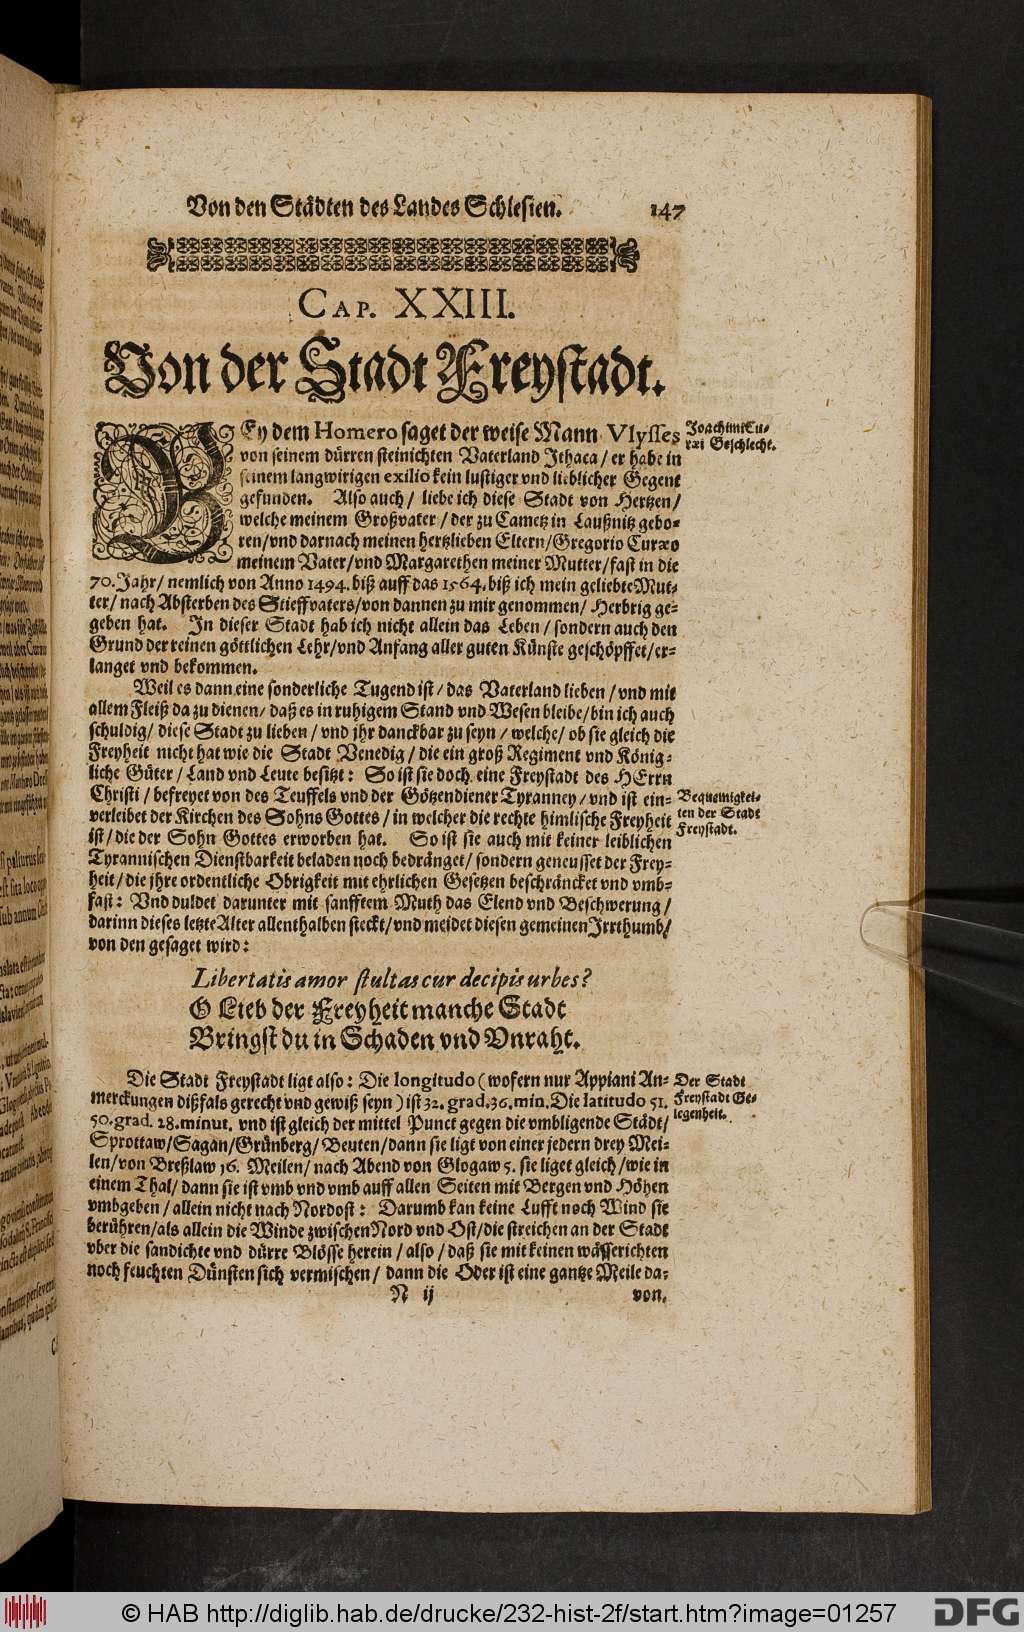 Von den Städten des Landes Schlesien. 147
CAP. XXIII.
Von der Stadt Freystadt.
BEy dem Homero saget der weise Mann Vlysses
von seinem dürren steinichten Vaterland Ithaca / er habe in
seinem langwirigen exilio kein lustiger vnd lieblicher Gegent
gefunden. Also auch / liebe ich diese Stadt von Hertzen /
welche meinem Großvater / der zu Cametz in Laußnitz gebo-
ren / vnd darnach meinen hertzlieben Eltern / Gregorio Curæo
meinem Vater / vnd Margarethen meiner Mutter / fast in die
70. Jahr / nemlich von Anno 1494. biß auff das 1564. biß ich mein geliebte Mut-
ter / nach Absterben des Stieffvaters / von dannen zu mir genommen / Herbrig ge-
geben hat. In dieser Stadt hab ich nicht allein das Leben / sondern auch den
Grund der reinen göttlichen Lehr / vnd Anfang aller guten Künste geschöpffet / er-
langet vnd bekommen.
Joachimi Cu-
ræi Geschlecht.
Weil es dann eine sonderliche Tugend ist / das Vaterland lieben / vnd mit
allem Fleiß da zu dienen / daß es in ruhigem Stand vnd Wesen bleibe / bin ich auch
schuldig / diese Stadt zu lieben / vnd jhr danckbar zu seyn / welche / ob sie gleich die
Freyheit nicht hat wie die Stadt Venedig / die ein groß Regiment vnd König-
liche Güter / Land vnd Leute besitzt: So ist sie doch eine Freystadt des HErrn
Christi / befreyet von des Teuffels vnd der Götzendiener Tyranney / vnd ist ein-
verleibet der Kirchen des Sohns Gottes / in welcher die rechte himlische Freyheit
ist / die der Sohn Gottes erworben hat. So ist sie auch mit keiner leiblichen
Tyrannischen Dienstbarkeit beladen noch bedränget / sondern geneusset der Frey-
heit / die jhre ordentliche Obrigkeit mit ehrlichen Gesetzen beschräncket vnd vmb-
fast: Vnd duldet darunter mit sanfftem Muth das Elend vnd Beschwerung /
darinn dieses letzte Alter allenthalben steckt / vnd meidet diesen gemeinen Irrthumb /
von den gesaget wird:
Bequemigkei-
ten der Stadt
Freystadt.
Libertatis amor stultas cur decipis urbes?
O Lieb der Freyheit manche Stadt
Bringst du in Schaden vnd Vnraht.
Die Stadt Freystadt ligt also: Die longitudo (wofern nur Appiani An-
merckungen dißfals gerecht vnd gewiß seyn) ist 32. grad. 36. min. Die latitudo 51.
50. grad. 28. minut. vnd ist gleich der mittel Punct gegen die vmbligende Städt /
Sprottaw / Sagan / Grünberg / Beuten / dann sie ligt von einer jedern drey Mei-
len / von Breßlaw 16. Meilen / nach Abend von Glogaw 5. sie liget gleich / wie in
einem Thal / dann sie ist vmb vnd vmb auff allen Seiten mit Bergen vnd Höhen
vmbgeben / allein nicht nach Nordost: Darumb kan keine Lufft noch Wind sie
berühren / als allein die Winde zwischen Nord vnd Ost / die streichen an der Stadt
vber die sandichte vnd dürre Blösse herein / also / daß sie mit keinen wässerichten
noch feuchten Dünsten sich vermischen / dann die Oder ist eine gantze Meile da-
N ij von.
Der Stadt
Freystadt Ge-
legenheit.
© HAB http://diglib.hab.de/drucke/232-hist-2f/start.htm?image=01257
DFG